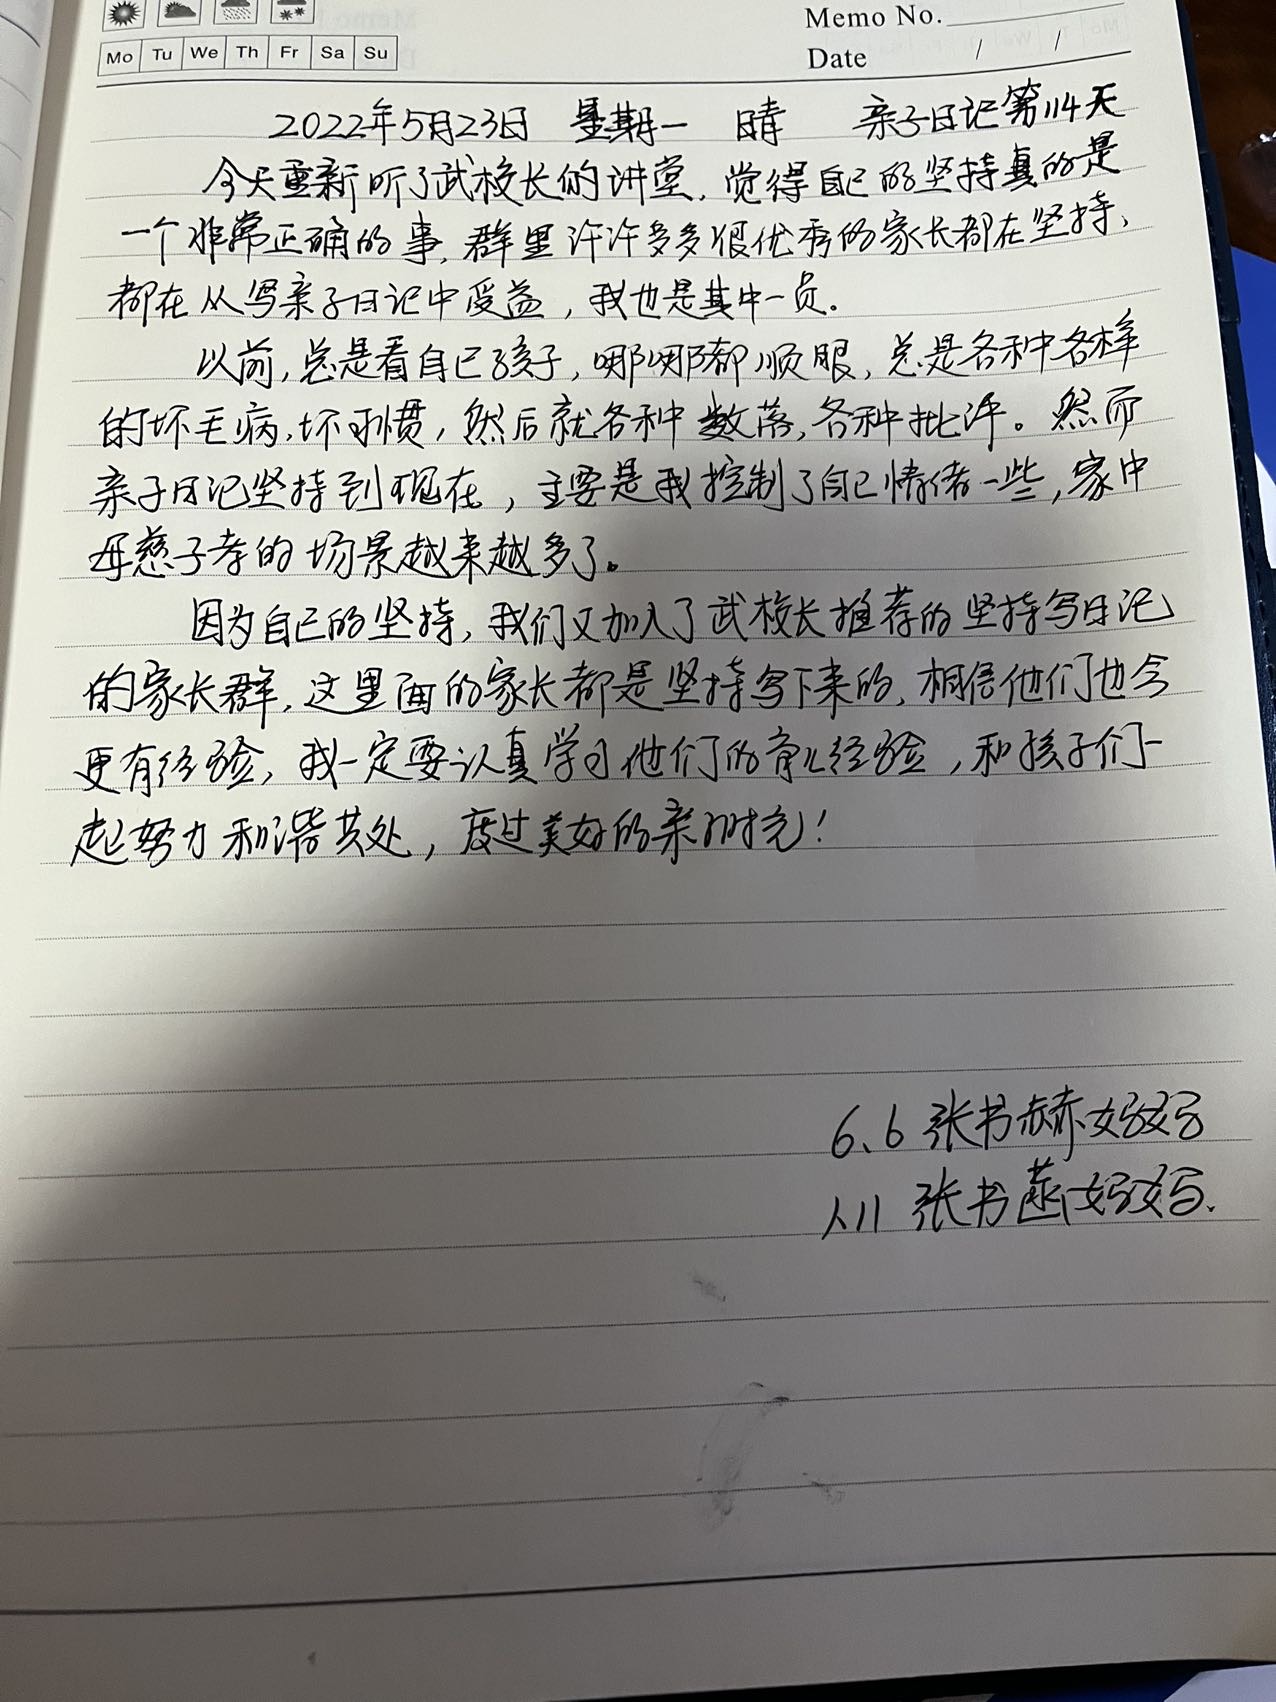 Memo No.
Mo Tu We Th Fr Sa Su
Date / /
2022年5月23日 星期一 晴 亲子日记第114天
今天重新听了武校长的讲堂,觉得自己的坚持真的是
一个非常正确的事,群里许许多多很优秀的家长都在坚持、
都在从写亲子日记中受益,我也是其中一员。
以前,总是看自己孩子,哪哪都顺眼,总是各种各样
的坏毛病,坏习惯,然后就各种数落,各种批评。然而
亲子日记坚持到现在,主要是我控制了自己情绪一些,家中
母慈子孝的场景越来越多了。
因为自己的坚持,我们又加入了武校长推荐的坚持写日记
的家长群,这里面的家长都是坚持写下来的,相信他们也会
更有经验,我一定要认真学习他们的育儿经验,和孩子们一
起努力和谐共处,度过美好的亲子时光!
6.6 张书赫妈妈
张书菡妈妈.